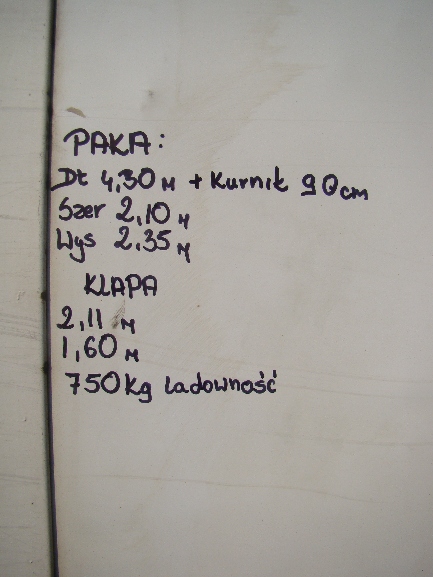 PAKA:
Dł 4,30 m + Kurnik 90cm
Szer 2,10 m
Wys 2,35 m
KLAPA
2,11 m
1,60 m
750Kg Ładowność